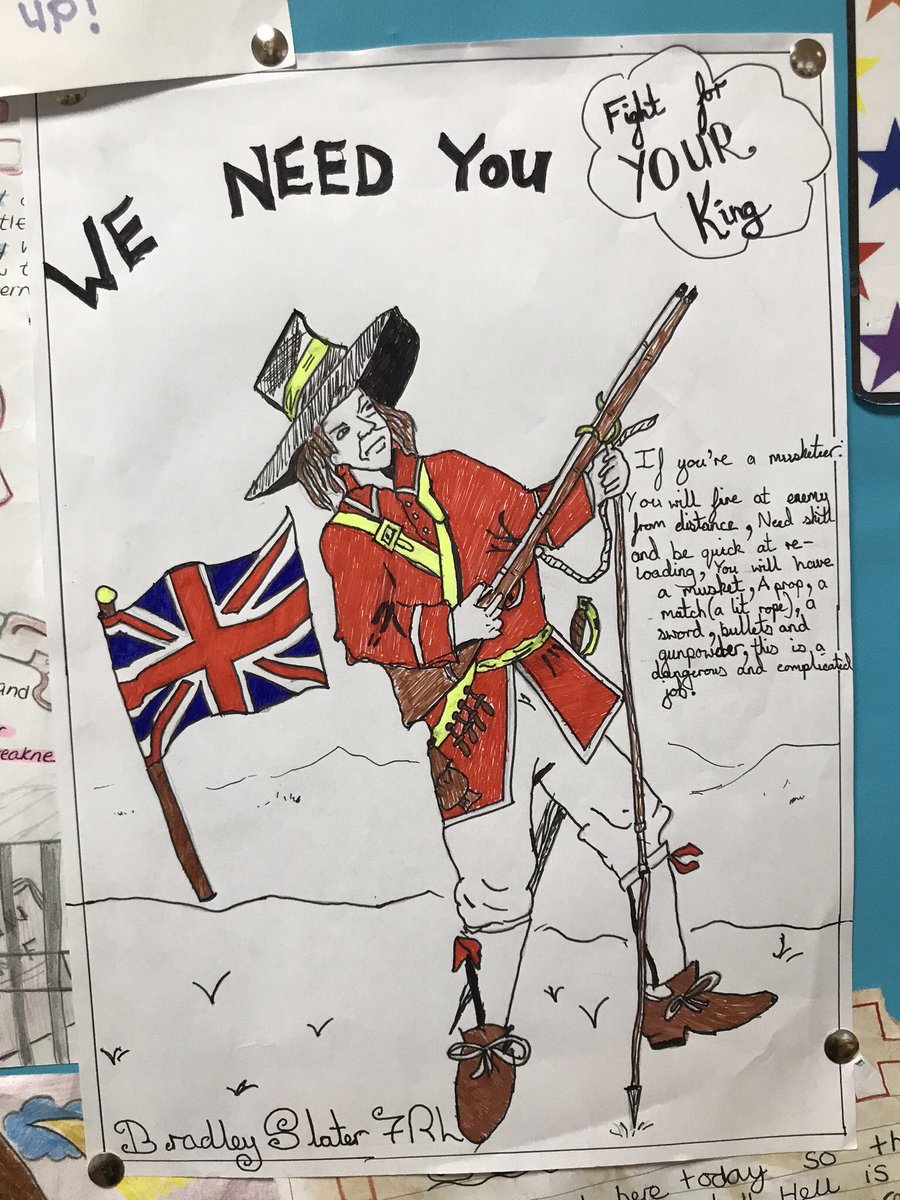 up!
WE NEED YOU
Fight for
YOUR
King
If you're a musketeer:
You will fire at enemy
from distance, Need skill
and be quick at re-
loading, You will have
a musket, A prop, a
match (a lit rope), a
sword, bullets and
gunpowder, this is a
dangerous and complicated
job!
and
eakne
Bradley Slater 7RL
here today so th
Hell is